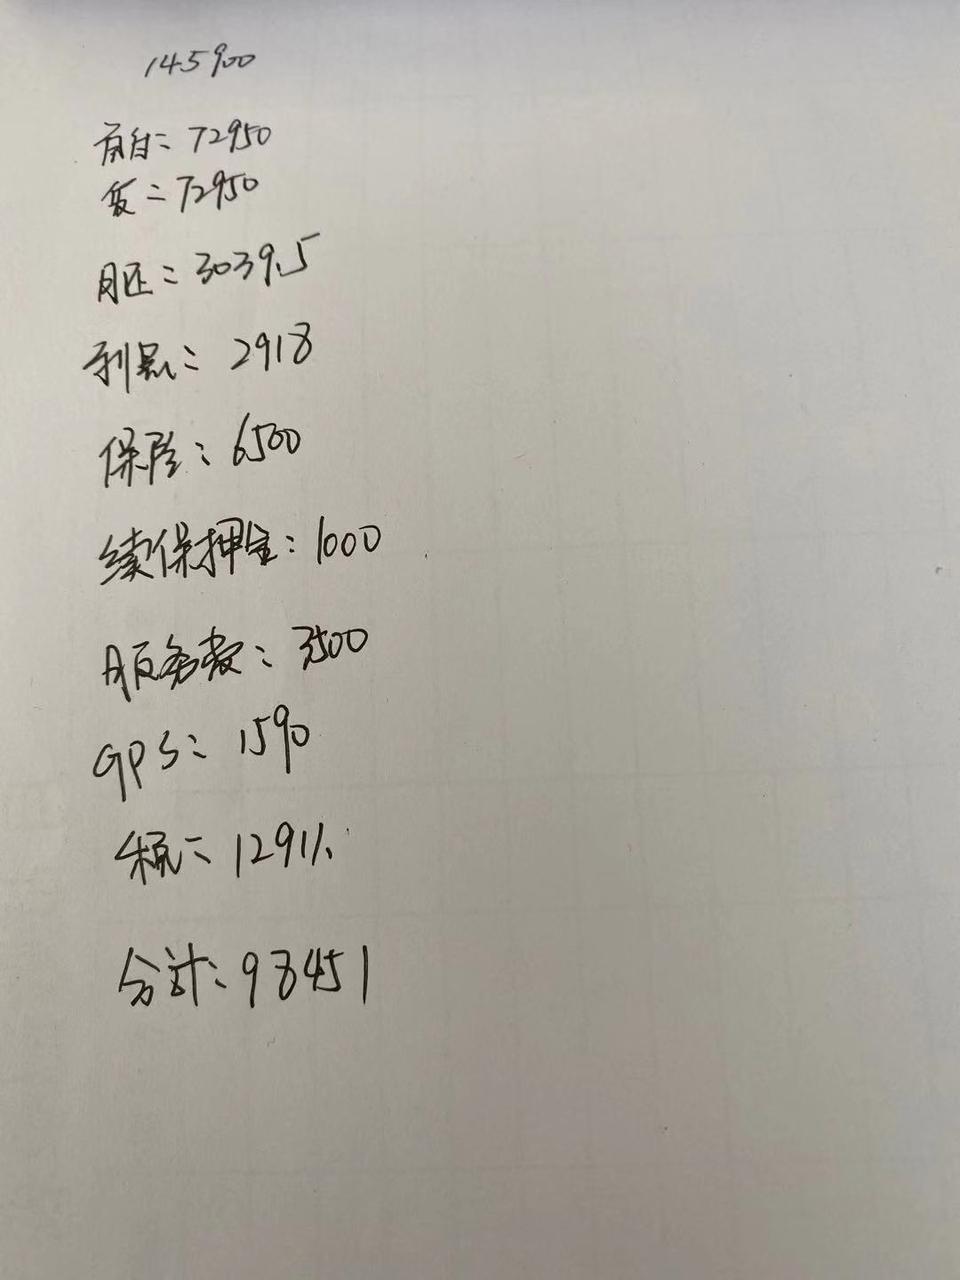 145900
首付：72950
贷：72950
月还：3039.5
利息：2918
保险：6500
续保押金：1000
服务费：3500
GPS：1590
税：12911.
合计：98451